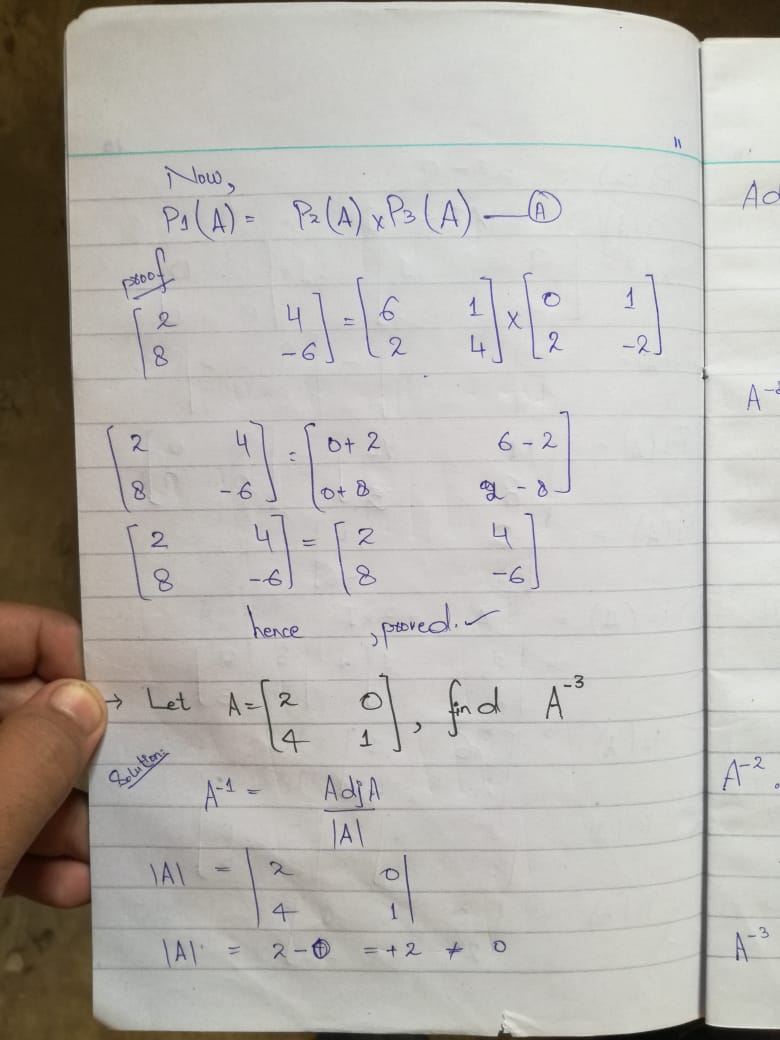 11
Now,
P1(A) = P2(A) x P3(A) — (A)
proof
[2 4] = [6 1] x [0 1]
[8 -6] [2 4] [2 -2]
[2 4] = [0+2 6-2]
[8 -6] [0+8 2-8]
[2 4] = [2 4]
[8 -6] [8 -6]
hence , proved. ✓
→ Let A = [2 0], find A⁻³
[4 1]
Solution:
A⁻¹ = AdjA
|A|
|A| = |2 0|
|4 1|
|A| = 2 - 0 = +2 ≠ 0
Ad
A⁻
A⁻².
A⁻³